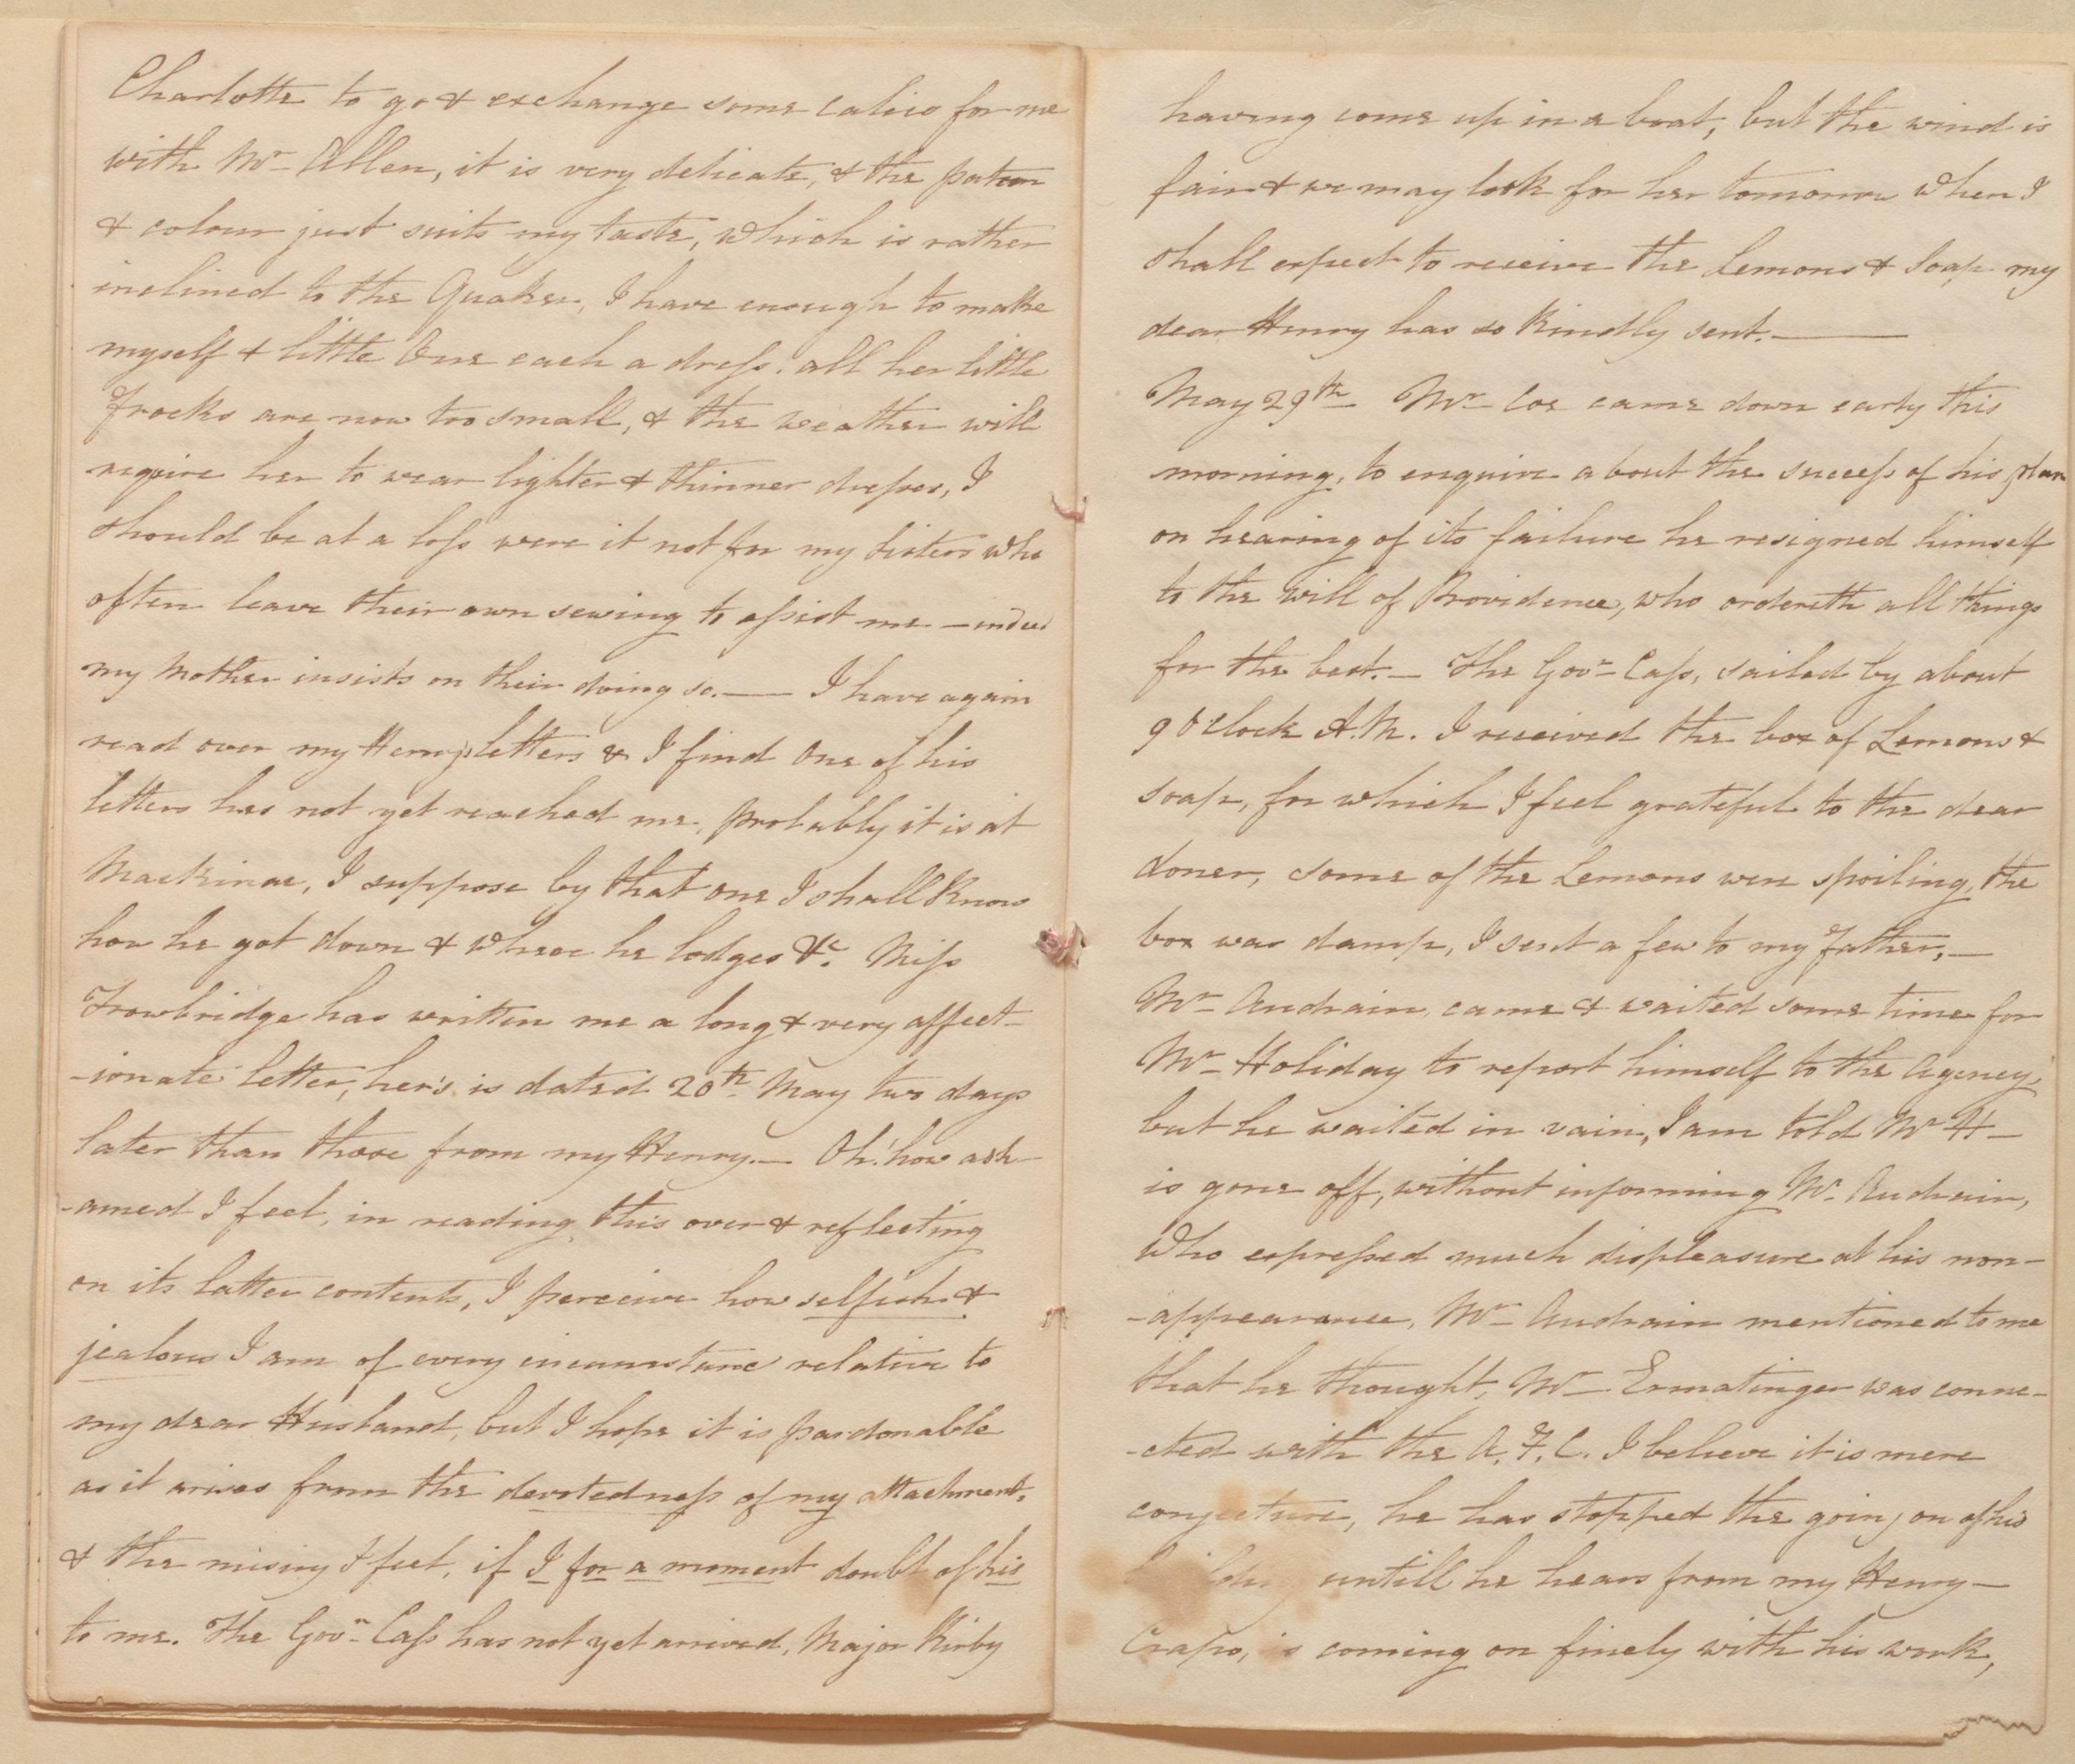 Charlotte to go & exchange some calico for me
with Mr Allen, it is very delicate, & the pattern
& colour just suits my taste, which is rather
inclined to the Quaker, I have enough to make
myself & little One each a dress. all her little
Frocks are now too small, & the weather will
require her to wear lighter & thinner dresses, I
should be at a loss were it not for my Sisters who
often leave their own sewing to assist me — indeed
my Mother insists on their doing so. — I have again
read over my Henry's letters & I find One of his
letters has not yet reached me, probably it is at
Mackinac, I suppose by that one I shall know
how he got down & where he lodges &c. Miss
Trowbridge has written me a long & very affect-
-ionate letter, her's is dated 20th May two days
later than those from my Henry. — Oh! how ash-
-amed I feel, in reading this over & reflecting
on its latter contents, I perceive how selfish &
jealous I am of every circumstance relative to
my dear Husband, but I hope it is pardonable
as it arises from the devotedness of my attachment,
& the misery I feel, if I for a moment doubt of his
to me. The Govr Cass has not yet arrived, Major Kirby
having come up in a boat, but the wind is
fair & we may look for her tomorrow when I
shall expect to receive the Lemons & Soap my
dear Henry has so kindly sent. —
May 29th Mr Coe came down early this
morning, to enquire about the success of his plan
on hearing of its failure he resigned himself
to the will of Providence, who ordereth all things
for the best. — The Govr Cass, sailed by about
9 O'Clock A.M. I received the box of Lemons &
soap, for which I feel grateful to the dear
doner, some of the Lemons were spoiling, the
box was damp, I sent a few to my Father, —
Mr Audrain came & waited some time for
Mr Holiday to report himself to the Agency,
but he waited in vain, I am told Mr H—
is gone off, without informing Mr Audrain,
Who expressed much displeasure at his non-
-appearance, Mr Audrain mentioned to me
that he thought, Mr Ermatinger was conne-
-cted with the A. F. C. I believe it is mere
conjecture, he has stopped the going on of his
untill he hears from my Henry —
Crapo, is coming on finely with his work,